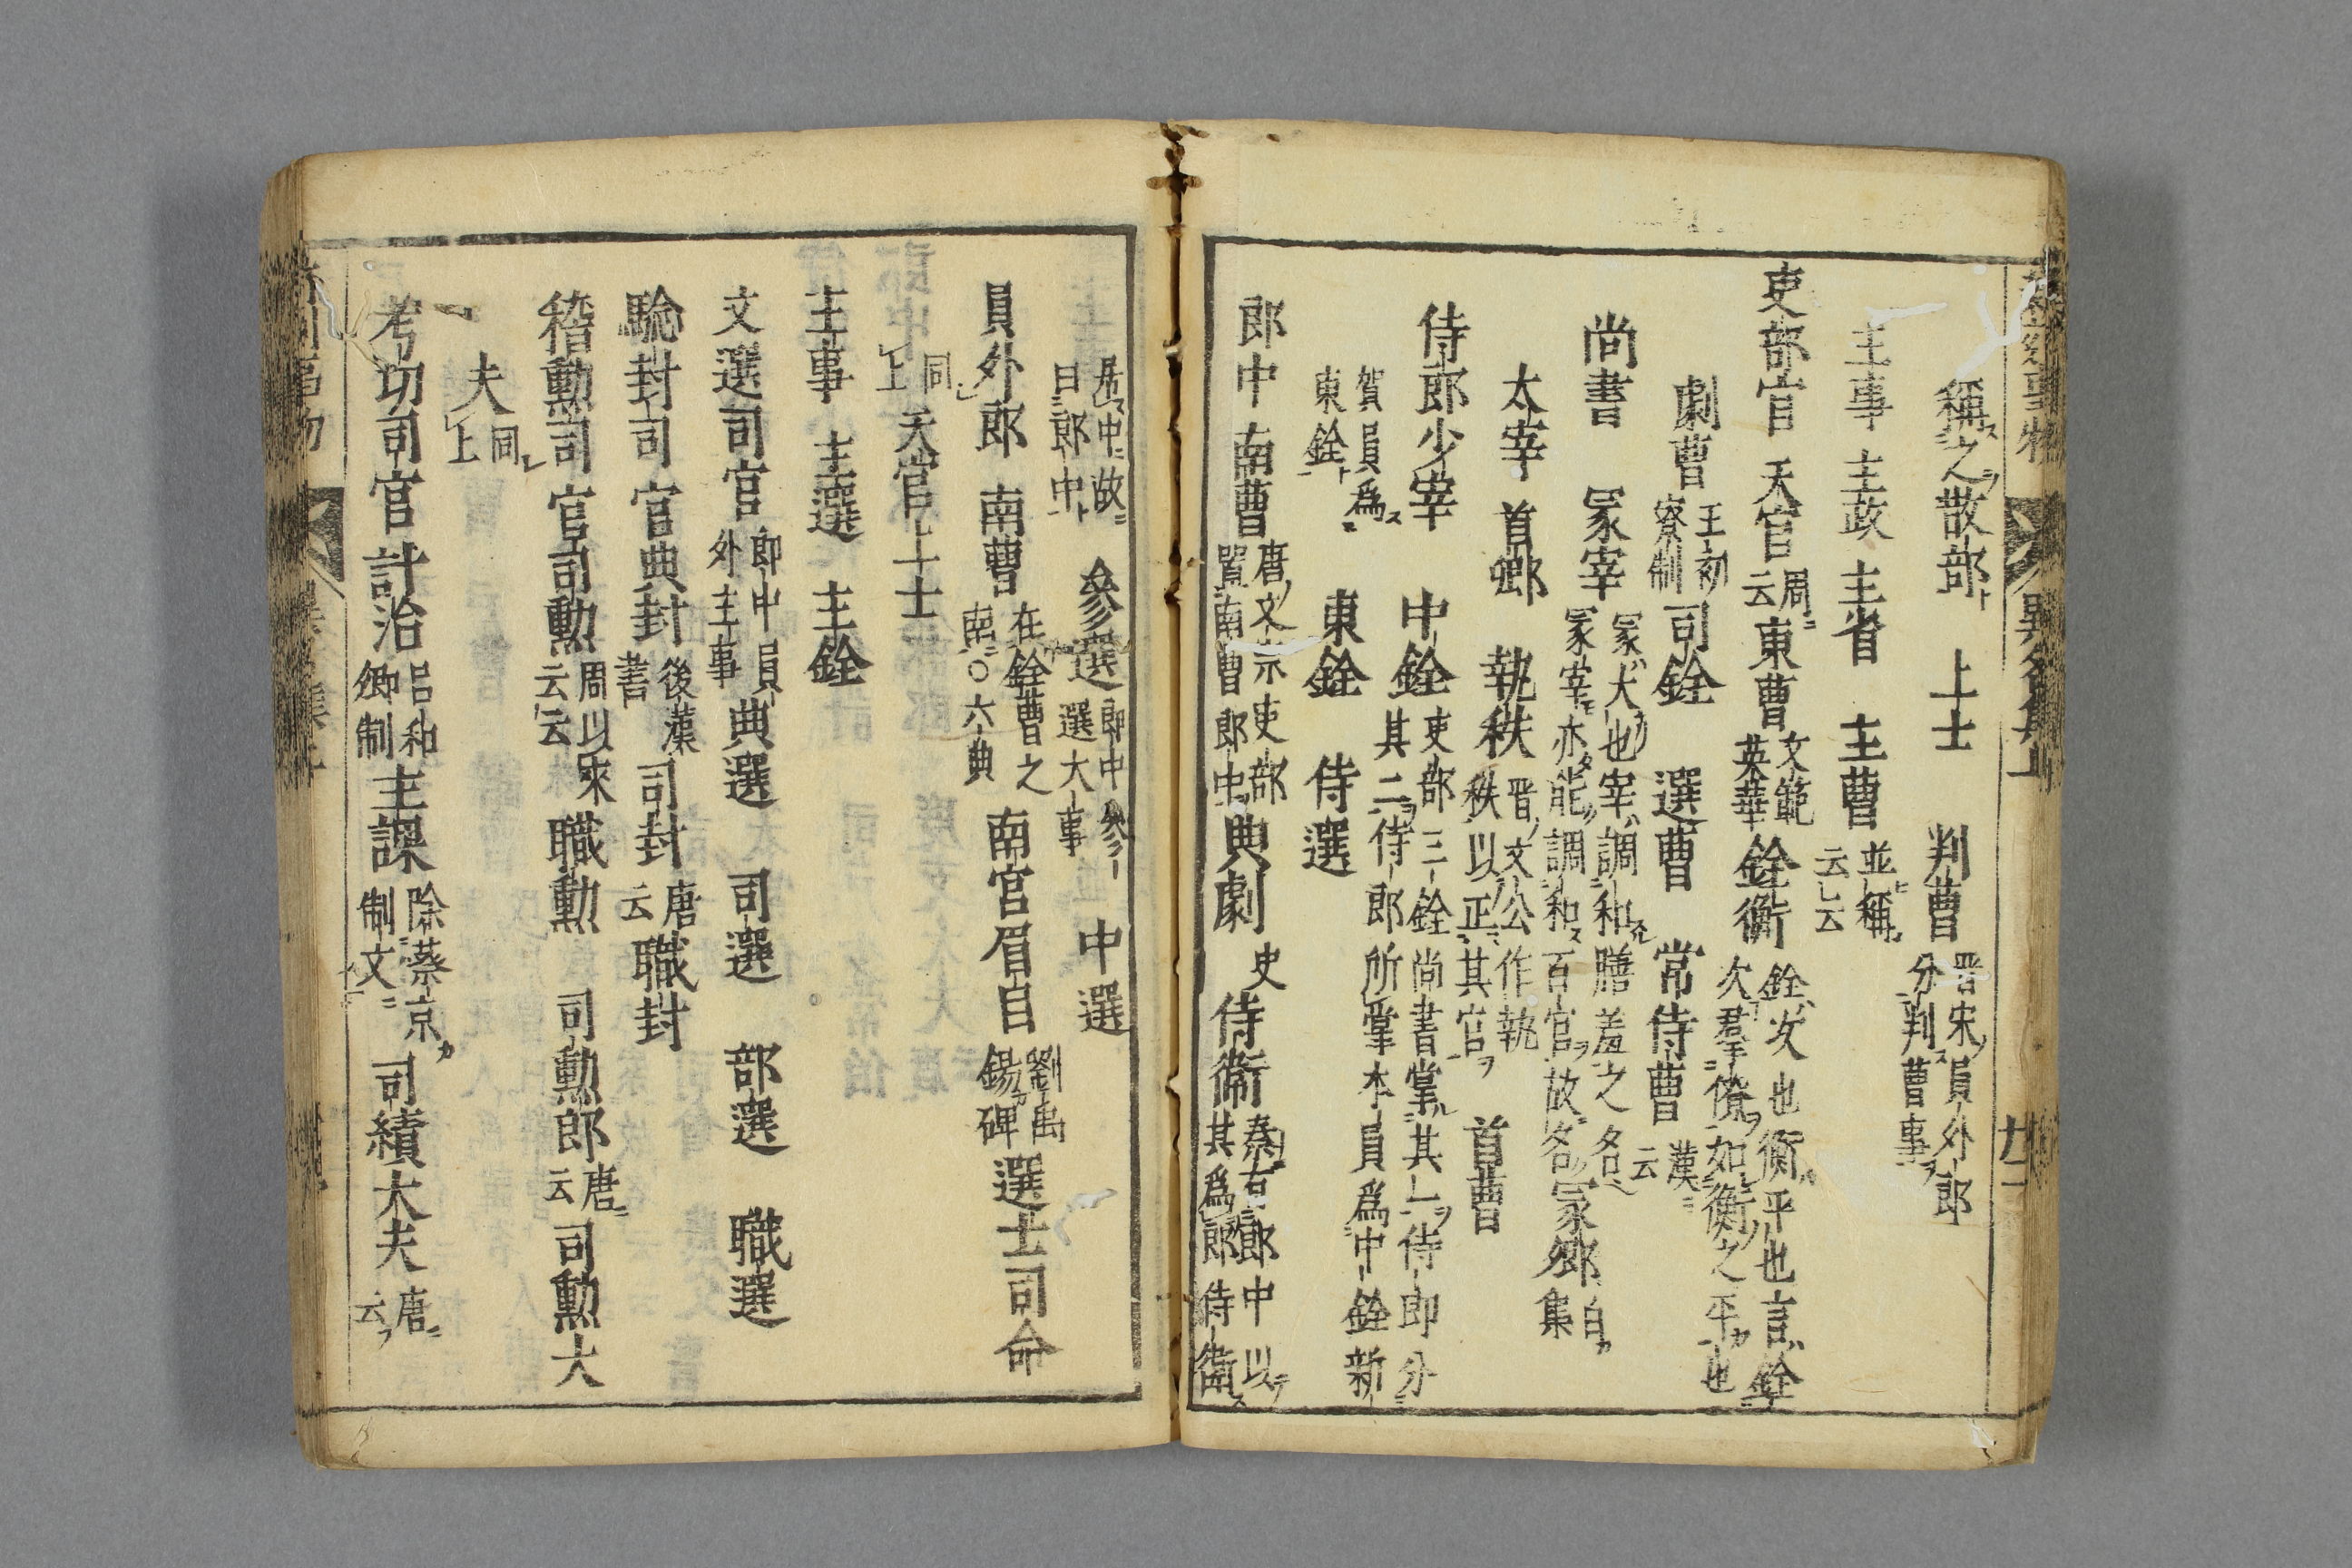 稱之散部 上士 判曹 晋宋員外郎分判曹事
主事 主政 主省 主曹 並稱云云
吏部官 天官 周云 東曹 文範英華 銓衡 銓次也衡平也言銓次羣僚如衡之平也
劇曹 王初寮制 司銓 選曹 常侍曹 漢云
尚書 冢宰 冢大也宰調和膳羞之名冢宰亦能調和百官故名 冢卿 白集
太宰 首卿 執秩 晋文公作執秩以正其官 首曹
侍郎 少宰 中銓 吏部三銓尚書掌其一侍郎分其二侍郎所掌本員爲中銓新
賀員爲東銓 東銓 侍選
郎中 南曹 唐文宗吏部置南曹郎中 典劇 史 侍衛 秦右郎中以其爲郎侍衛
居中故曰郎中 參選 郎中參選大事 中選
員外郎 南曹 在銓曹之南○六典 南宮眉目 劉禹錫碑 選士 司命
同上 天官上士
主事 主選 主銓
文選司官 郎中員外主事 典選 司選 部選 職選
驗封司官 典封 後漢書 司封 唐云 職封
稽勳司官 司勳 周以來云云 職勳 司勳郎 唐云 司勳大
夫 同上
考切司官 計治 呂和卿制 主課 除蔡京制文 司績大夫 唐云